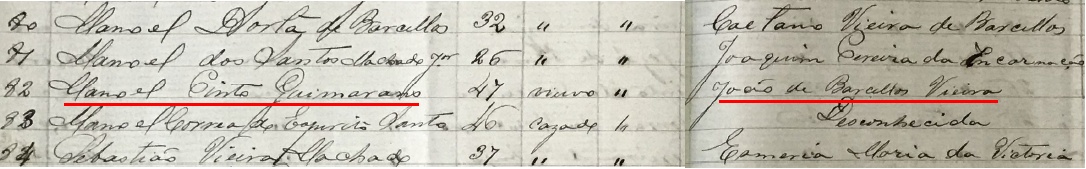 80 Manoel Horta de Barcellos 32 " " Caetano Vieira de Barcellos
81 Manoel dos Santos Machado Jor 26 " " Joaquim Pereira da Incarnação
82 Manoel Pinto Guimarans 47 viuvo " João de Barcellos Vieira
83 Manoel Correa do Espirito Santo 46 cazado " Desconhecida
84 Sebastião Vieira Machado 37 " " Esmeria Maria da Victoria